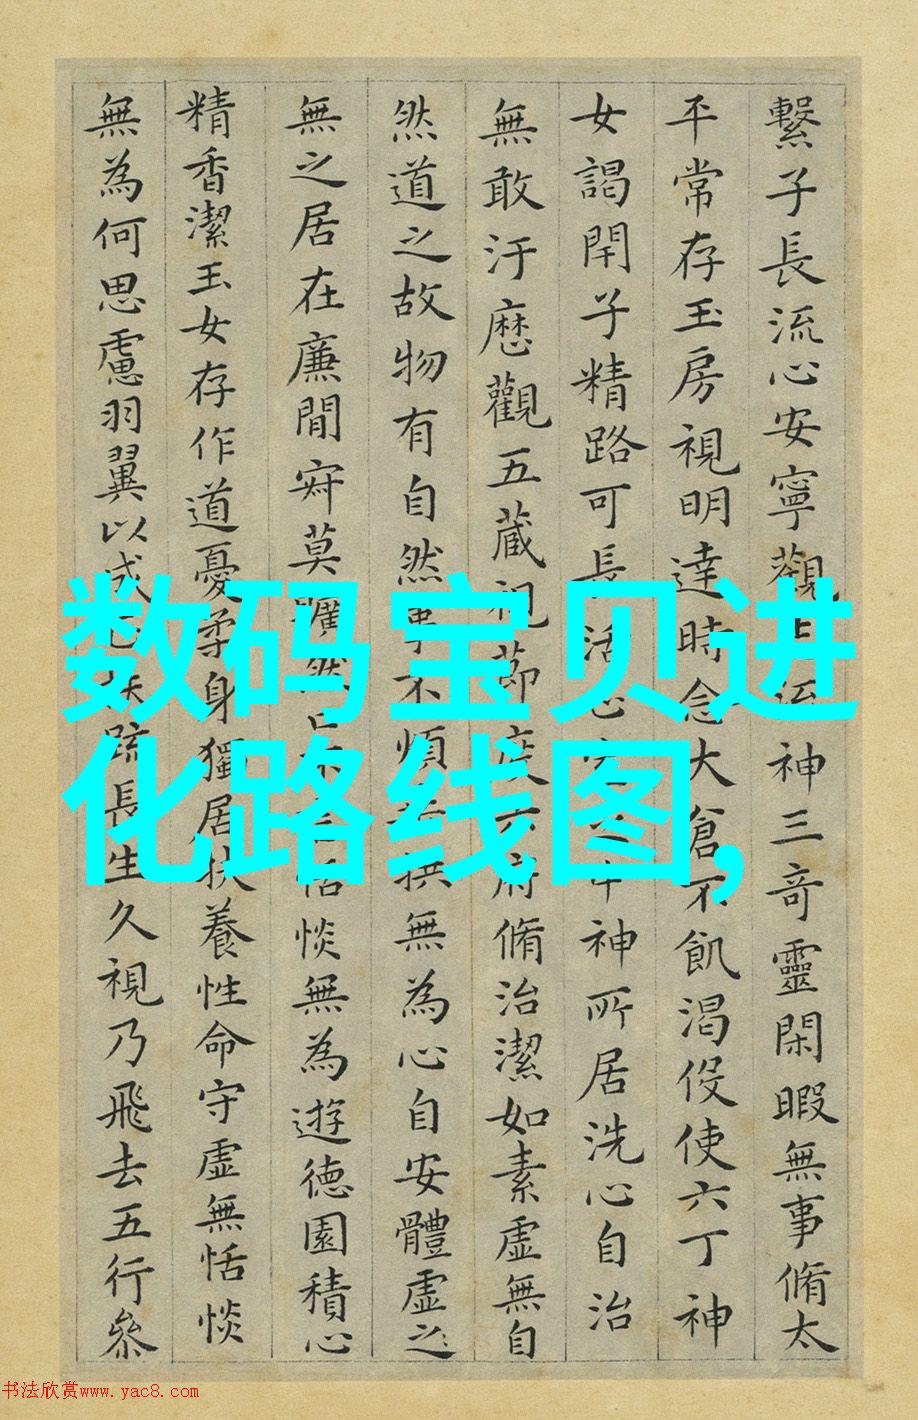 繫子長流心安寧觀上
神三竒靈閑暇無事脩太
平常存玉房視明達時念大倉不飢渴伇使六丁神
女謁閇子精路可長活
神所居洗心自治
無敢汙歷觀五藏視莭度
脩治潔如素虛無自
然道之故物有自然事不煩
無為心自安體虛之
無之居在廉閒寂莫曠然
恬惔無為遊德園積心
精香潔玉女存作道憂柔身獨居扶養性命守虛無恬惔
無為何思慮羽翼以成
疏長生久視乃飛去五行參
数码宝贝进
化路线图,
书法欣赏www.yac8.com